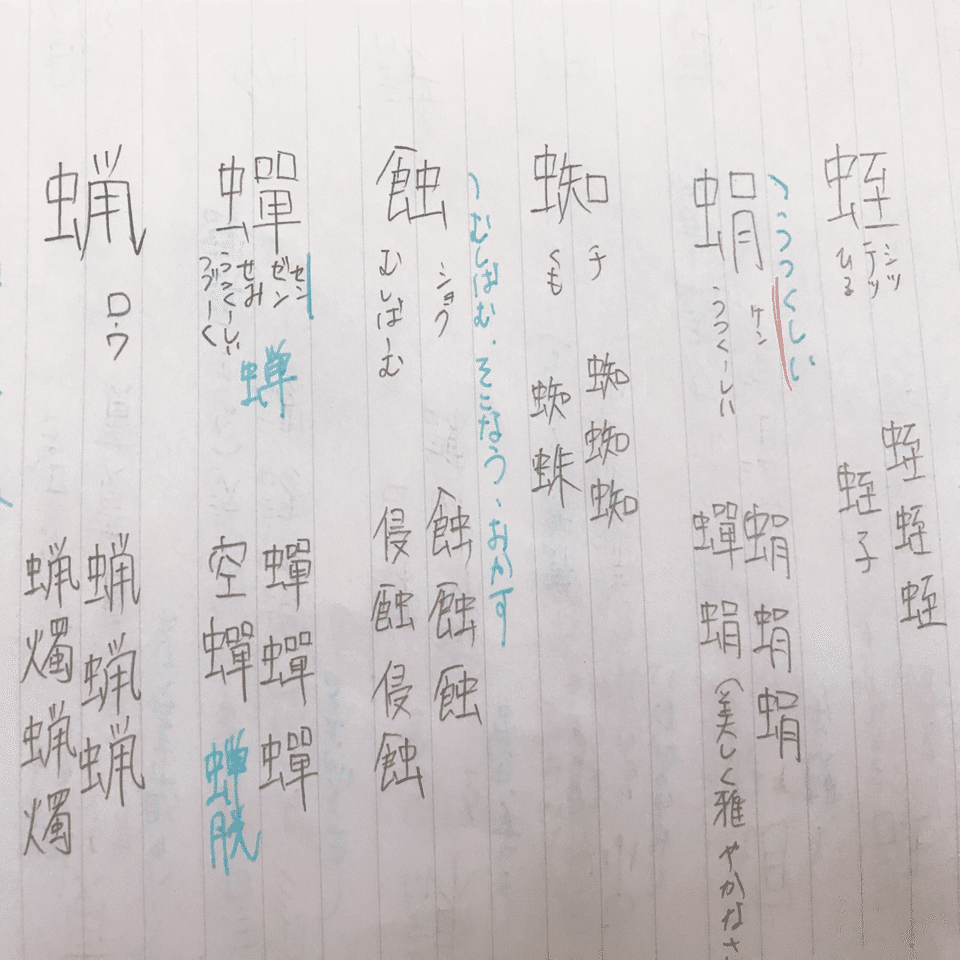 蛭
シツ
テツ
ひる
蛭蛭蛭
蛭子
うつくしい
蜎
ケン
うつくーしい
蜎蜎蜎
蟬蜎(美しく雅やかなさ
蜘
チ
くも
蜘蜘蜘
蜘蛛
むしばむ、そこなう、おかす
蝕
ショク
むしばーむ
蝕蝕蝕
侵蝕侵蝕
蟬
セン
ゼン
せみ
うつくーしい
つづーく
蝉
蟬蟬蟬
空蟬
蝉脱
蝋
ロウ
蝋蝋蝋
蝋燭蝋燭